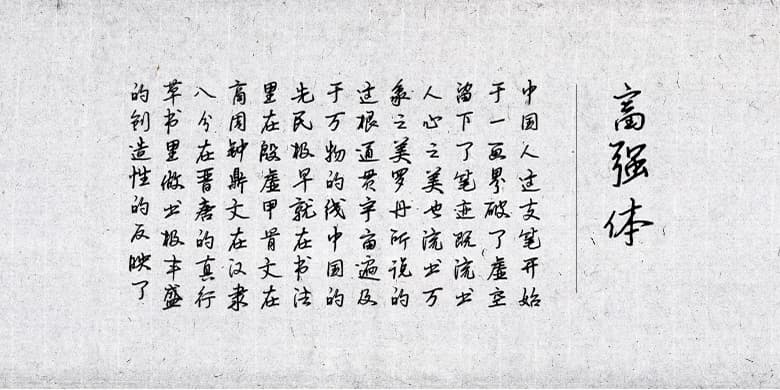 高强体
中国人这支笔开始
于一画界破了虚空
留下了笔迹既流出
人心之美也流出万
象之美罗丹所说的
这根通贯宇宙遍及
于万物的线中国的
先民极早就在书法
里在殷虚甲骨文在
商周钟鼎文在汉隶
八分在晋唐的真行
草书里做出极丰盛
的创造性的反映了